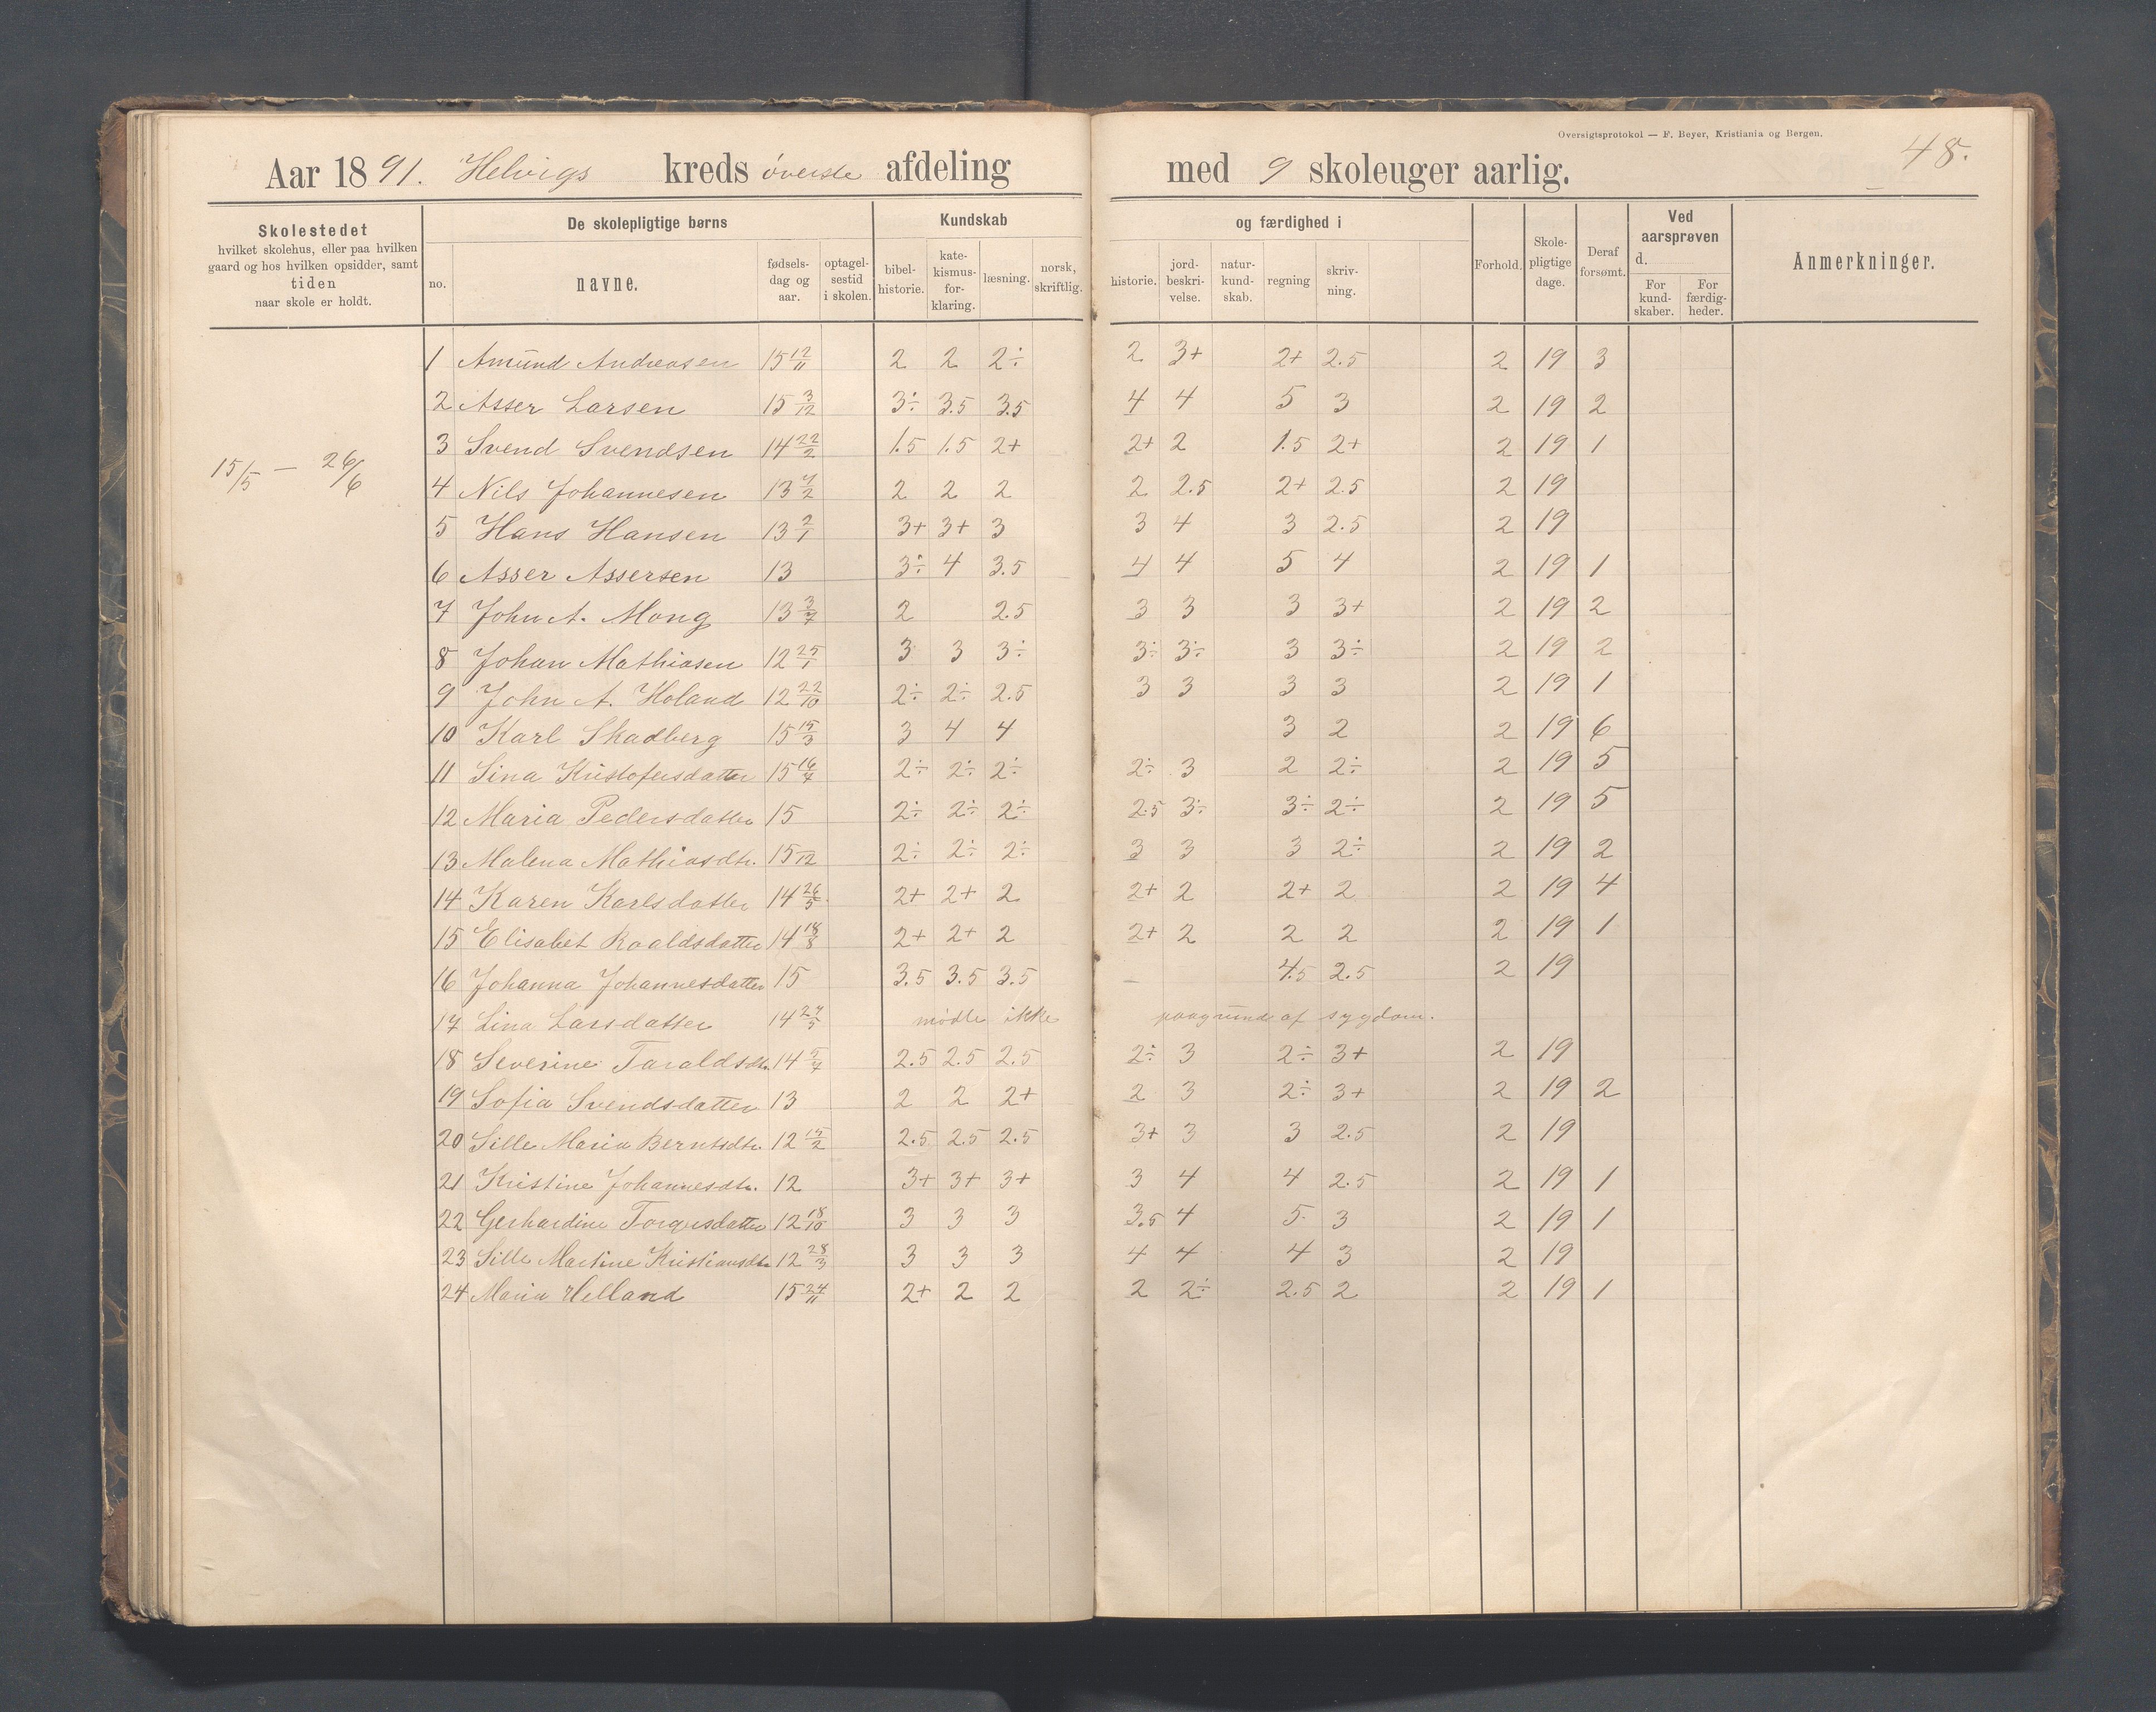 Oversigtsprotokol — F. Beyer, Kristiania og Bergen.
48.
Aar 1891. Helvigs kreds øverste afdeling med 9 skoleuger aarlig.
Skolestedet hvilket skolehus, eller paa hvilken gaard og hos hvilken opsidder, samt tiden naar skole er holdt.
De skolepligtige børns
no. navne. fødsels-dag og aar. optagel-sestid i skolen.
Kundskab og færdighed i
bibel-historie. kate-kismus-for-klaring. læsning. norsk, skriftlig. historie. jord-beskri-velse. natur-kund-skab. regning skriv-ning.
Forhold. Skole-pligtige dage. Deraf forsømt.
Ved aarsprøven d.
For kund-skaber. For færdig-heder.
Anmerkninger.
15/5 — 26/6
1 Amund Andreasen 15 12/11 2 2 2÷ 2 3+ 2+ 2.5 2 19 3
2 Asser Larsen 15 3/12 3÷ 3.5 3.5 4 4 5 3 2 19 2
3 Svend Svendsen 14 22/2 1.5 1.5 2+ 2+ 2 1.5 2+ 2 19 1
4 Nils Johannesen 13 7/2 2 2 2 2 2.5 2+ 2.5 2 19
5 Hans Hansen 13 2/1 3+ 3+ 3 3 4 3 2.5 2 19
6 Asser Assersen 13 3÷ 4 3.5 4 4 5 4 2 19 1
7 John A. Mong 13 3/7 2 2.5 3 3 3 3+ 2 19 2
8 Johan Mathiasen 12 25/1 3 3 3÷ 3÷ 3÷ 3 3÷ 2 19 2
9 John A. Holand 12 22/10 2÷ 2÷ 2.5 3 3 3 3 2 19 1
10 Karl Skadberg 15 15/3 3 4 4 3 2 2 19 6
11 Sina Kristofersdatter 15 16/7 2÷ 2÷ 2÷ 2÷ 3 2 2÷ 2 19 5
12 Maria Pedersdatter 15 2÷ 2÷ 2÷ 2.5 3÷ 3÷ 2÷ 2 19 5
13 Malena Mathiasdtr. 15 /12 2÷ 2÷ 2÷ 3 3 3 2÷ 2 19 2
14 Karen Karlsdatter 14 26/5 2+ 2+ 2 2+ 2 2+ 2 2 19 4
15 Elisabet Roaldsdatter 14 18/8 2+ 2+ 2 2+ 2 2 2 2 19 1
16 Johanna Johannesdatter 15 3.5 3.5 3.5 — 4.5 2.5 2 19
17 Lina Larsdatter 14 27/5 mødte ikke paagrund af sygdom.
18 Severine Taraldsdtr. 14 5/7 2.5 2.5 2.5 2÷ 3 2÷ 3+ 2 19
19 Sofia Svendsdatter 13 2 2 2+ 2 3 2÷ 3+ 2 19 2
20 Sille Maria Berntsdtr. 12 15/2 2.5 2.5 2.5 3+ 3 3 2.5 2 19
21 Kristine Johannesdtr. 12 3+ 3+ 3+ 3 4 4 2.5 2 19 1
22 Gerhardine Torgersdatter 12 18/10 3 3 3 3.5 4 5 3 2 19 1
23 Sille Martine Kristiansdtr 12 28/3 3 3 3 4 4 4 3 2 19
24 Maria Helland 15 24/11 2+ 2 2 2 2÷ 2.5 2 2 19 1